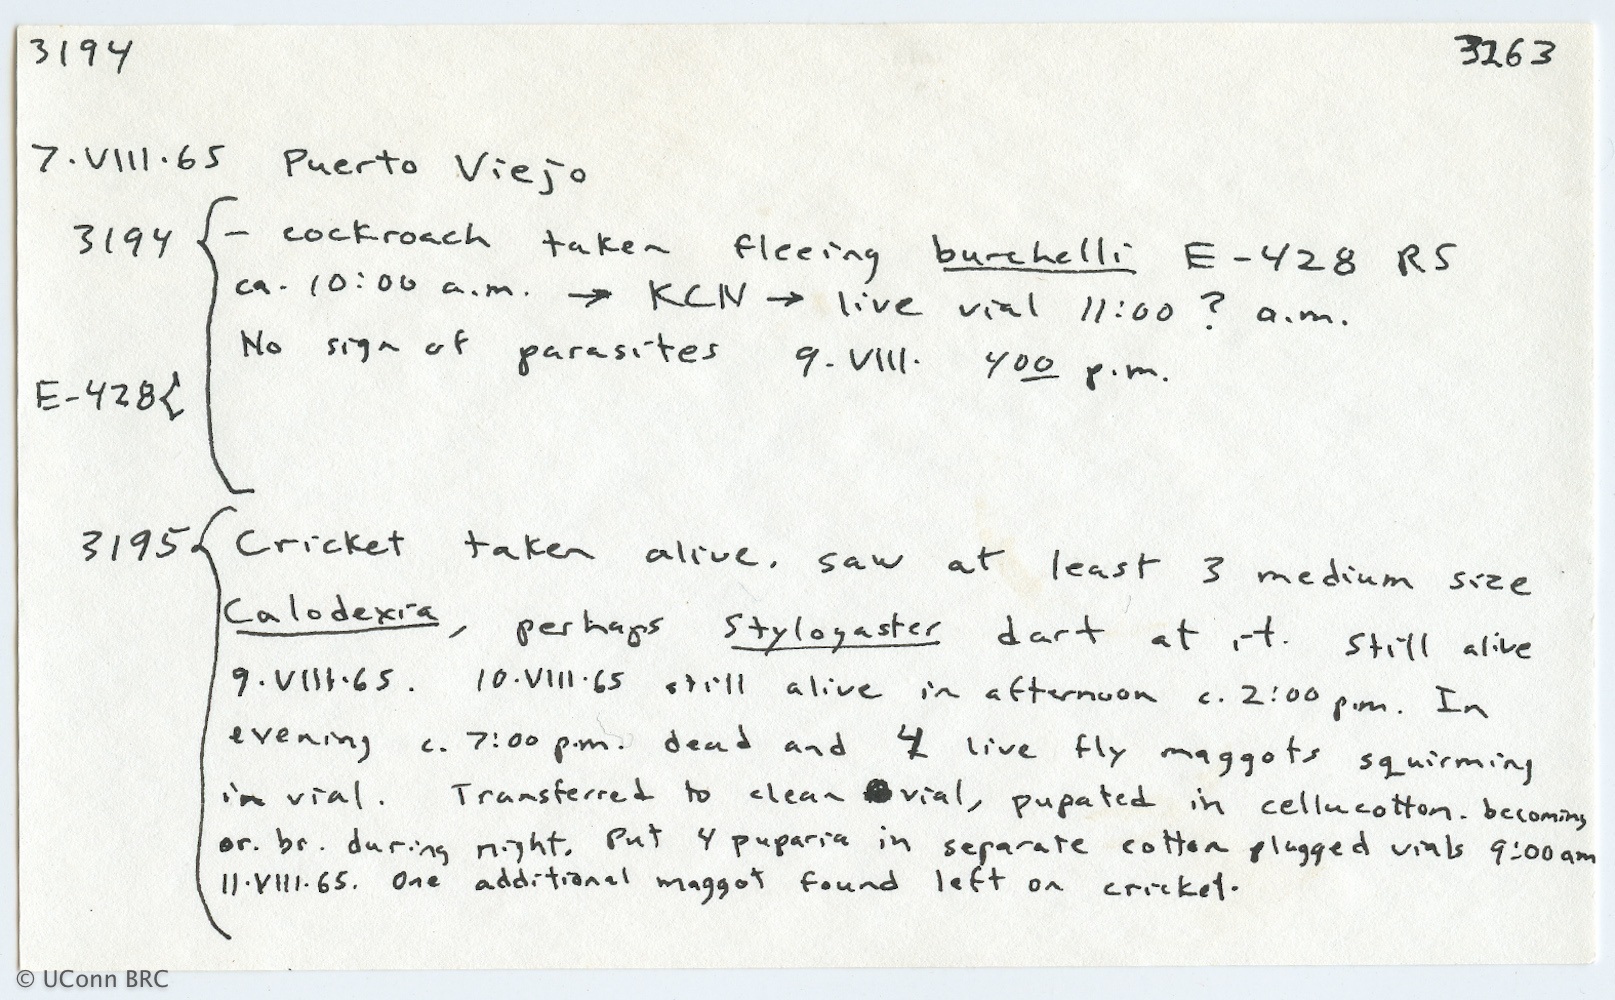 3194 3263
7.VIII.65 Puerto Viejo
3194 { – cockroach taken fleeing burchelli E-428 RS
ca. 10:00 a.m. → KCN → live vial 11:00 ? a.m.
No sign of parasites 9.VIII. 400 p.m.
E-428 {
3195 { Cricket taken alive. saw at least 3 medium size
Calodexia, perhaps Stylogaster dart at it. Still alive
9.VIII.65. 10.VIII.65 still alive in afternoon c. 2:00 p.m. In
evening c. 7:00 p.m. dead and 4 live fly maggots squirming
in vial. Transferred to clean vial, pupated in cellucotton. becoming
or. br. during night. Put 4 puparia in separate cotton plugged vials 9:00 am
11.VIII.65. One additional maggot found left on cricket.
© UConn BRC